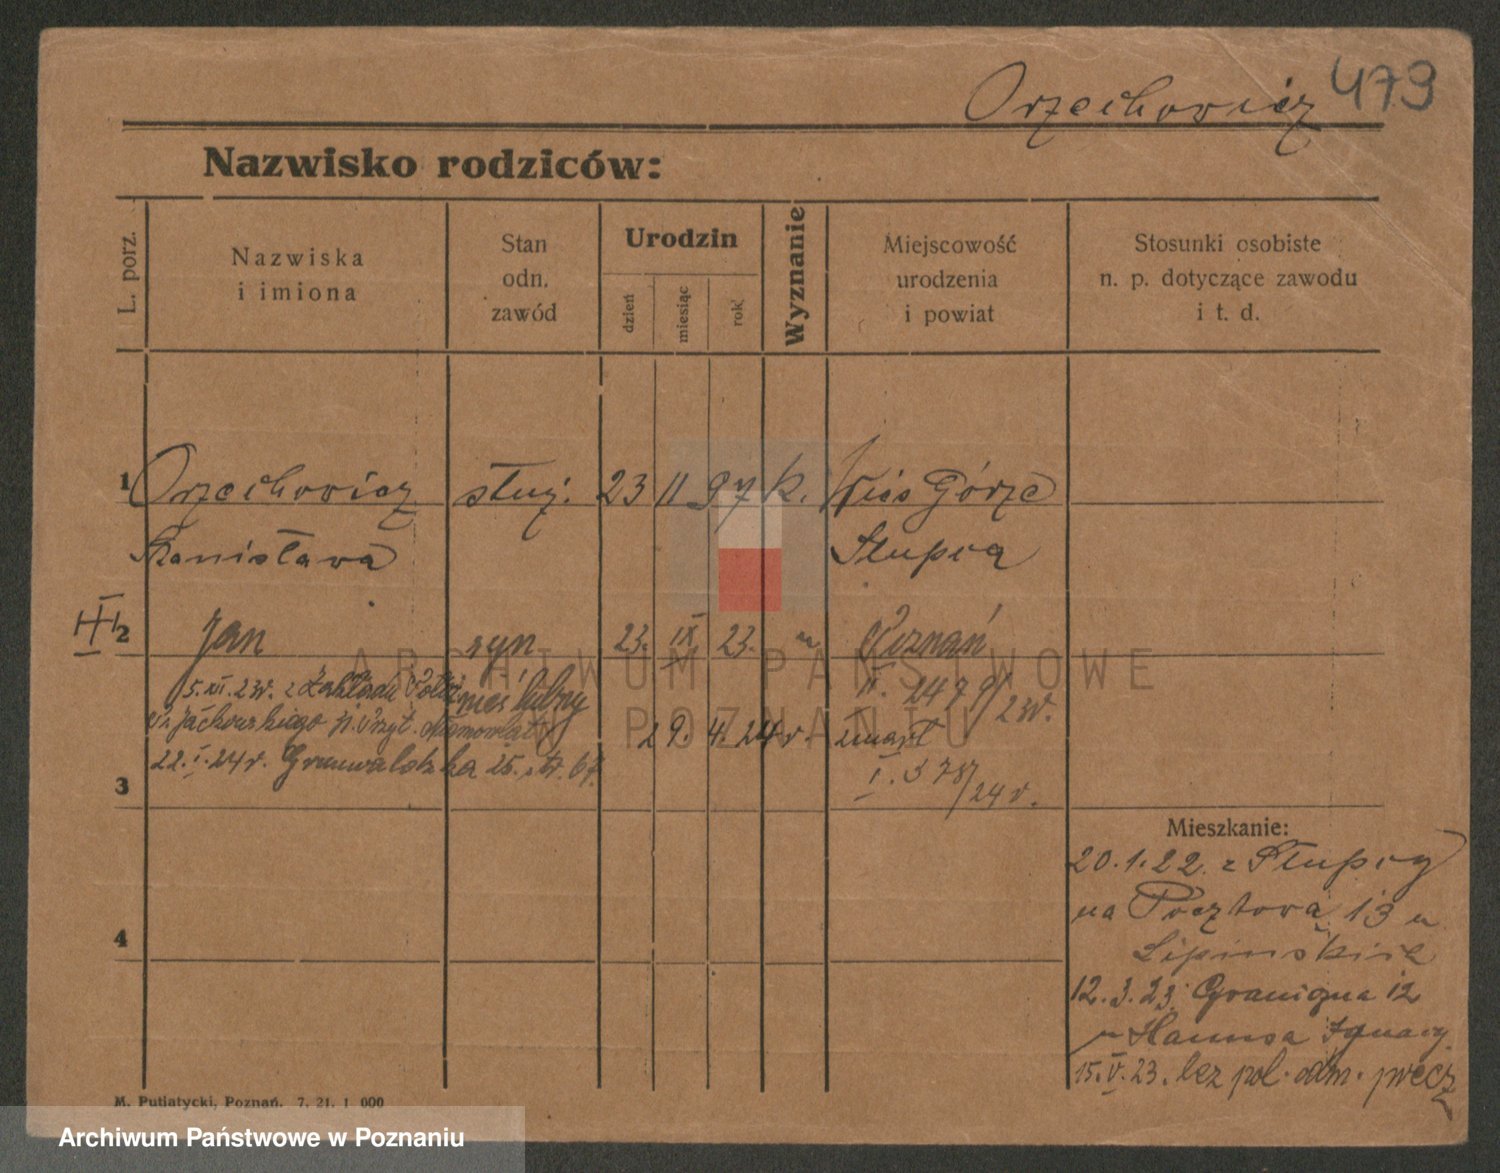 Orzechowicz 479
Nazwisko rodziców:
L. porz.
Nazwiska
i imiona
Stan
odn.
zawód
Urodzin
dzień
miesiąc
rok
Wyznanie
Miejscowość
urodzenia
i powiat
Stosunki osobiste
n. p. dotyczące zawodu
i t. d.
1 Orzechowicz służ. 23 11 97 k. Wieś Górze
Stanisława Słupca
2 Jan syn 23. IX 23. Poznań
nieślubny II. 2479/23r.
5. XI. 23r. z Zakładu Położ
29. 4. 24r. zmarł
22. I. 24r. Grunwaldzka 25.
I. 378/24r.
3
Mieszkanie:
20.1.22. z Słupcy
na Pocztowa 13 u
Lipińskie
12.3.23. Graniczna 12
u Hamusa Ignacy
15. V. 23. bez pol. odm. precz
4
M. Putiatycki, Poznań. 7. 21. 1 000
ARCHIWUM PAŃSTWOWE
W POZNANIU
Archiwum Państwowe w Poznaniu